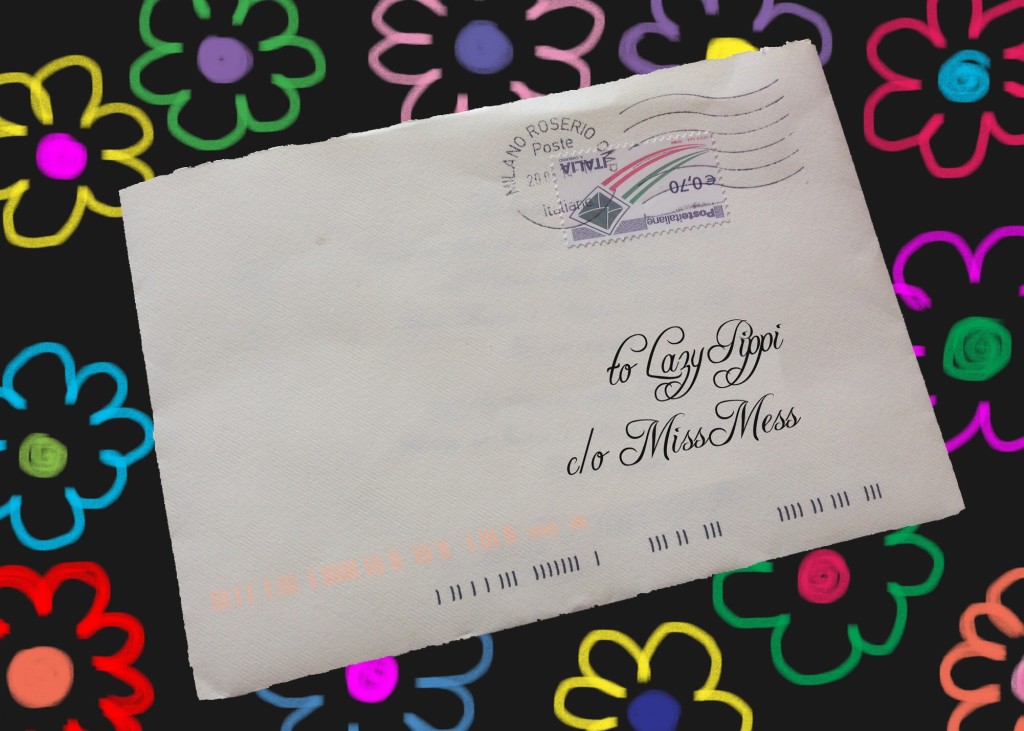 MILANO ROSERIO
Poste
Italiane
ITALIA
€0,70
Posteitaliane
to LazyPippi
c/o MissMess